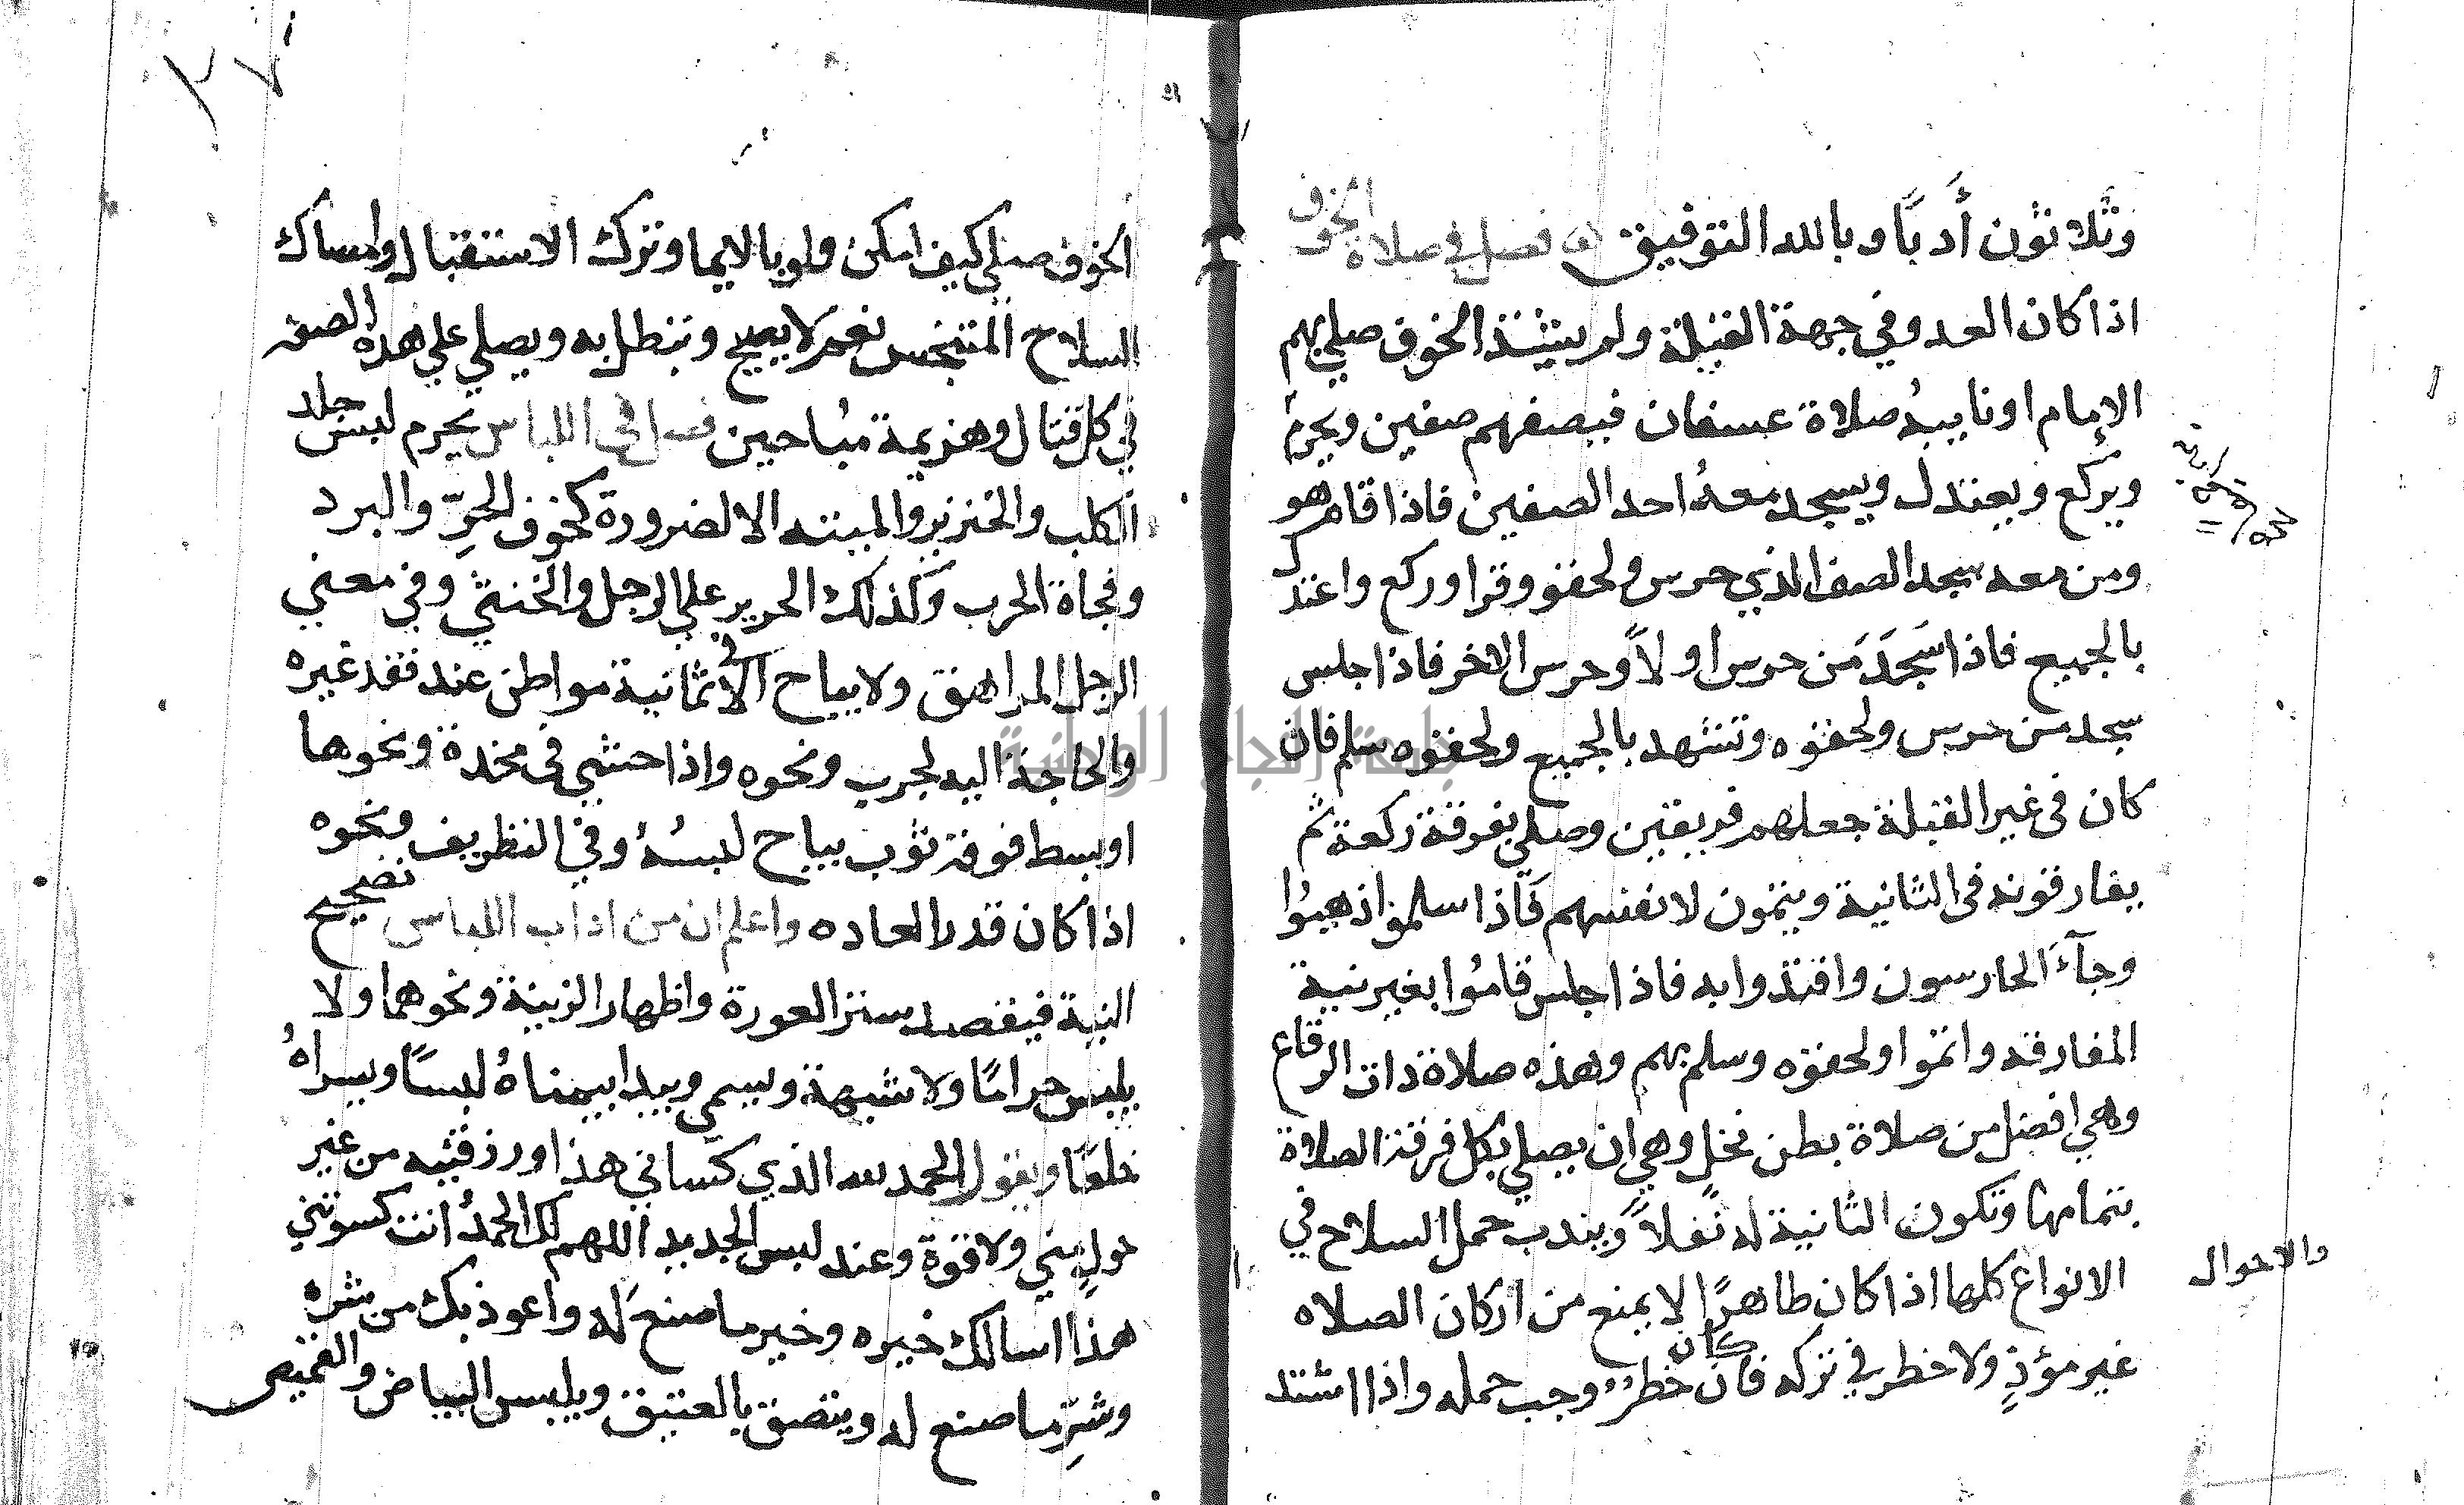 وثلاثون أدبًا وبالله التوفيق فصل في صلاة الخوف
اذا كان العدو في جهة القبلة ولم يشتد الخوف صلي بهم
الإمام او نايبهُ صلاة عسفان فيصفهم صفين ويحرم
ويركع ويعتدل ويسجد معهُ احد الصفين فاذا قام هو
ومن معه سجد الصف الذي حرس ولحقو وقرا وركع واعتدل
بالجميع فاذا سَجَدَ مَن حرس اولاً وحرس الاخر فاذا جلس
سجد من حرس ولحقوه وتشهد بالجميع ولحقوه سلم فان
كان في غير القبلة جعلهم فريقين وصلي بفرقة ركعة ثم
يفارقونه في الثانية ويتمون لانفسهم فاذا سلموا ذهبُوا
وجآءَ الحارسون واقتدوا به فاذا جلس قامُوا بغير نية
المفارقه واتموا ولحقوه وسلم بهم وهذه صلاة ذات الرقاع
وهي افضل من صلاة بطن نخل وهي ان يصلي بكل فرقة الصلاة
بتمامها وتكون الثانية له نفلاً ويندب حمل السلاح في
الانواع كلها اذا كان طاهرًا لا يمنع من اركان الصلاه
والاحوال
غير مؤذٍ ولا خطر في تركه فان كان خطرٌ وجب حمله واذا اشتد
٣٧
الخوف صلي كيف امكن ولو بالايما وترك الاستقبال وامساك
السلاح المتنجس نعم لا يصيح وتبطل به ويصلي علي هذه الصفه
في كل قتال وهزيمة مبُاحين فصل في اللباس يحرم لبس جلد
الكلب والخنزير والميته الا لضرورة كخوف الحرِّ والبرد
وفجاة الحرب وكذلك الحرير علي الرجل والخنثي وفي معني
الرجل المراهق ولا يباح الا في ثمانية مواطن عند فقد غيره
والحاجة اليه لجرب ونحوه واذا حشي في مخدة ونحوها
او بسط فوقه ثوب يباح لبسُهُ وفي التطريف ونحوه
اذا كان قدر العاده واعلم ان من اداب اللباس تصحيح
النية فيقصد ستر العورة واظهار الزينة ونحوهما ولا
يلبس حرامًا ولا شبهة ويسمي ويبدا بيمناهُ لبسًا ويسراهُ
خلعًا ويقول الحمد لله الذي كساني هذا ورزقنيه من غير
حولٍ مني ولا قوة وعند لبس الجديد اللهم لك الحمدُ انت كسوتني
هذا اسالك خيره وخير ما صنع له واعوذ بك من شره
وشرِّ ما صنع له ويتصدق بالعتيق ويلبس البياض والقميص